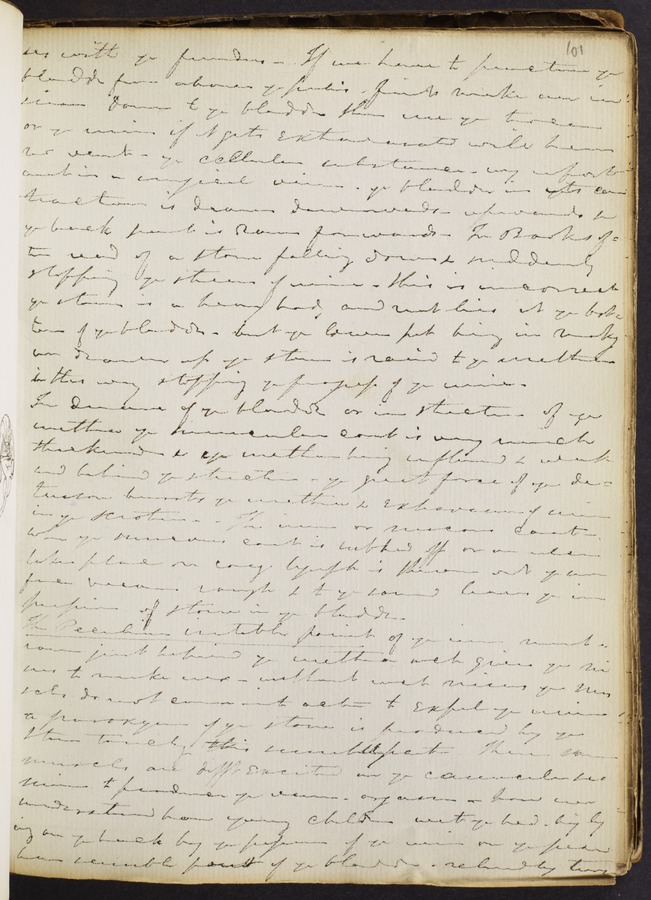 101
ses with ye fundus - If we have to puncture ye
bladder from above ye pubis. first make an in
cision down to ye bladder then use ye trocar
or ye urine if it gets extravasated will have
no vent - ye cellular substance
ye bladder in its con
traction is drawn downwards upwards &
ye back part is drawn forwards In Books of=
ten read of a stone falling down & suddenly
stopping ye stream of urine - this is incorrect
ye stone is a heavy body and will lie at ye bot=
tom of ye bladder - but ye lower part being in making
water drawn up ye stone is raised to ye urethra
in this way stopping ye progress of ye urine.
In disease of ye bladder or in stricture of ye
urethra ye muscular coat is very much
thickened & ye urethra being inflamed & weak
and behind ye stricture - ye great force of ye de=
trusor bursts ye urethra & extravasation of urine
in ye scrotum. The inner or mucous coat.
when ye mucous coat is rubbed off or an ulcer
takes place or coag lymph is thrown out ye sur
face becomes rough & to ye sound gives ye im
pression of stone in ye bladder.
The Peculiar irritable point of ye inner mem=
brane just behind ye urethra wch gives ye si
nus to make water - without wch ye mus
cles do not act to expel ye urine
a paroxysm of ye stone is produced by ye
stone touching this sensible part These same
muscles are diffy excited on ye
to produce ye
understand how young children wet ye bed. by ly
ing on ye back by ye pressure of ye urine on ye
sensible point of ye bladder - relieved by turn